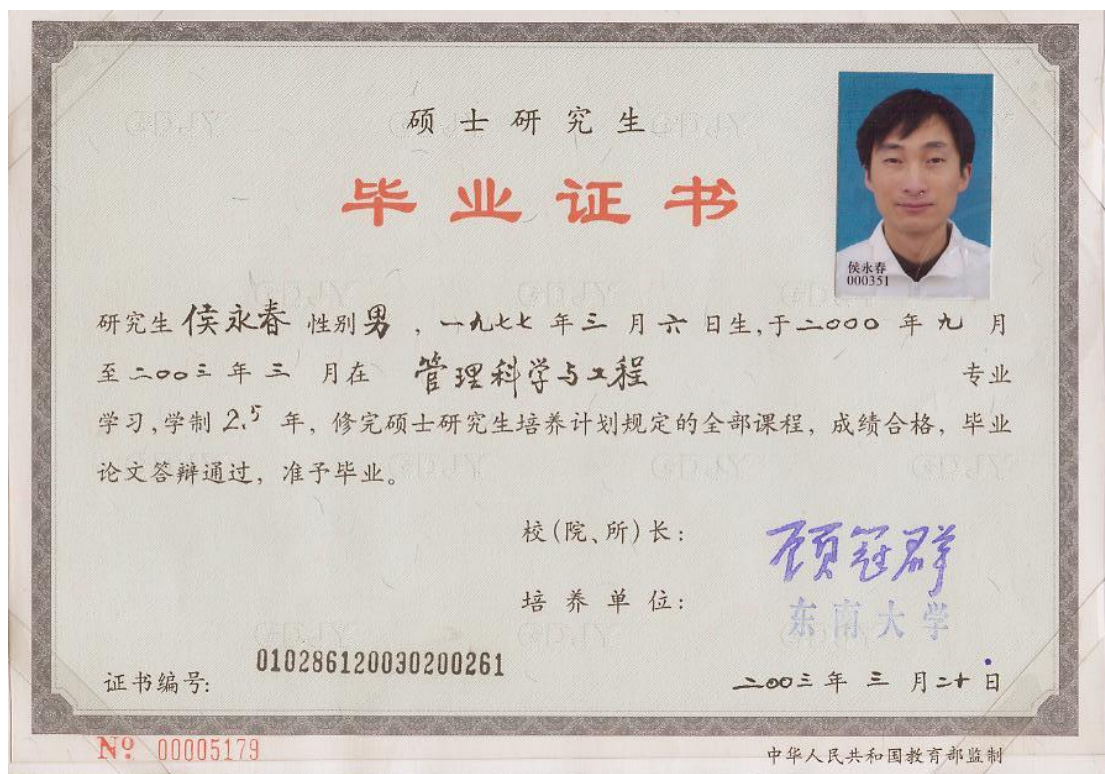 硕士研究生
毕业证书
侯永春
000351
研究生 侯永春 性别 男 ，一九七七 年 三 月 六 日生,于 二000 年 九 月
至 二00三 年 三 月在 管理科学与工程 专业
学习,学制 2.5 年，修完硕士研究生培养计划规定的全部课程，成绩合格，毕业
论文答辩通过，准予毕业。
校(院、所)长： 顾冠群
培养单位： 东南大学
证书编号: 010286120030200261
二00三 年 三 月 二十 日
Nº 00005179
中华人民共和国教育部监制